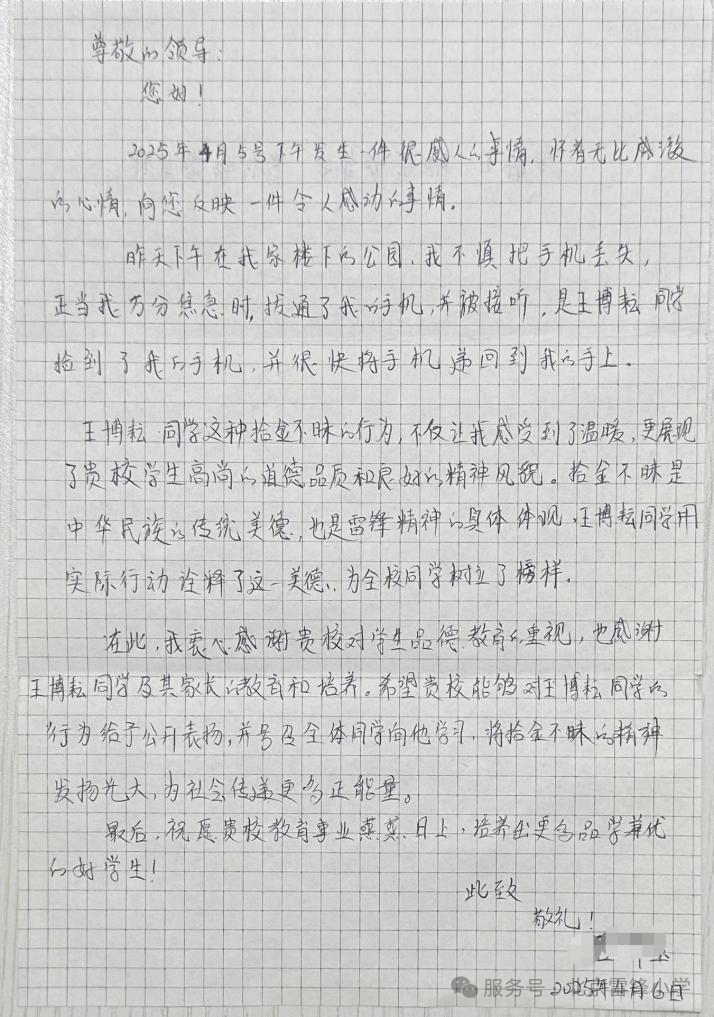 尊敬的领导：
您好！
2025年4月5号下午发生一件很感人的事情，怀着无比感激
的心情，向您反映一件令人感动的事情。
昨天下午在我家楼下的公园，我不慎把手机丢失，
正当我万分焦急时，拨通了我的手机，并被接听，是王博耘同学
捡到了我的手机，并很快将手机递回到我的手上。
王博耘同学这种拾金不昧的行为，不仅让我感受到了温暖，更展现
了贵校学生高尚的道德品质和良好的精神风貌。拾金不昧是
中华民族的传统美德，也是雷锋精神的具体体现，王博耘同学用
实际行动诠释了这一美德，为全校同学树立了榜样。
在此，我衷心感谢贵校对学生品德教育的重视，也感谢
王博耘同学及其家长的教育和培养。希望贵校能够对王博耘同学的
行为给予公开表扬，并号召全体同学向他学习，将拾金不昧的精神
发扬光大，为社会传递更多正能量。
最后，祝愿贵校教育事业蒸蒸日上，培养出更多品学兼优
的好学生！
此致
敬礼！
2025年4月6日
服务号 雷锋小学